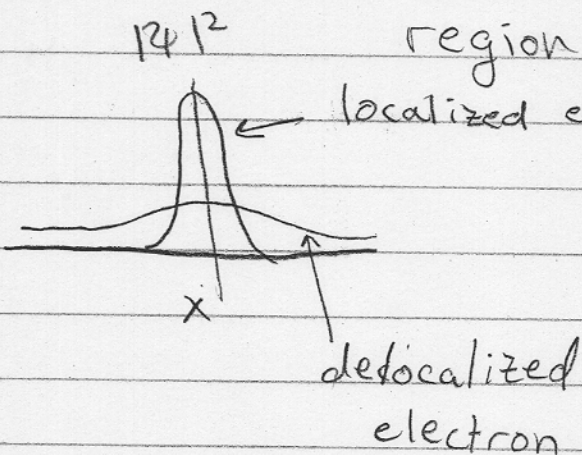 |ψ|²
region
localized e
x
delocalized
electron